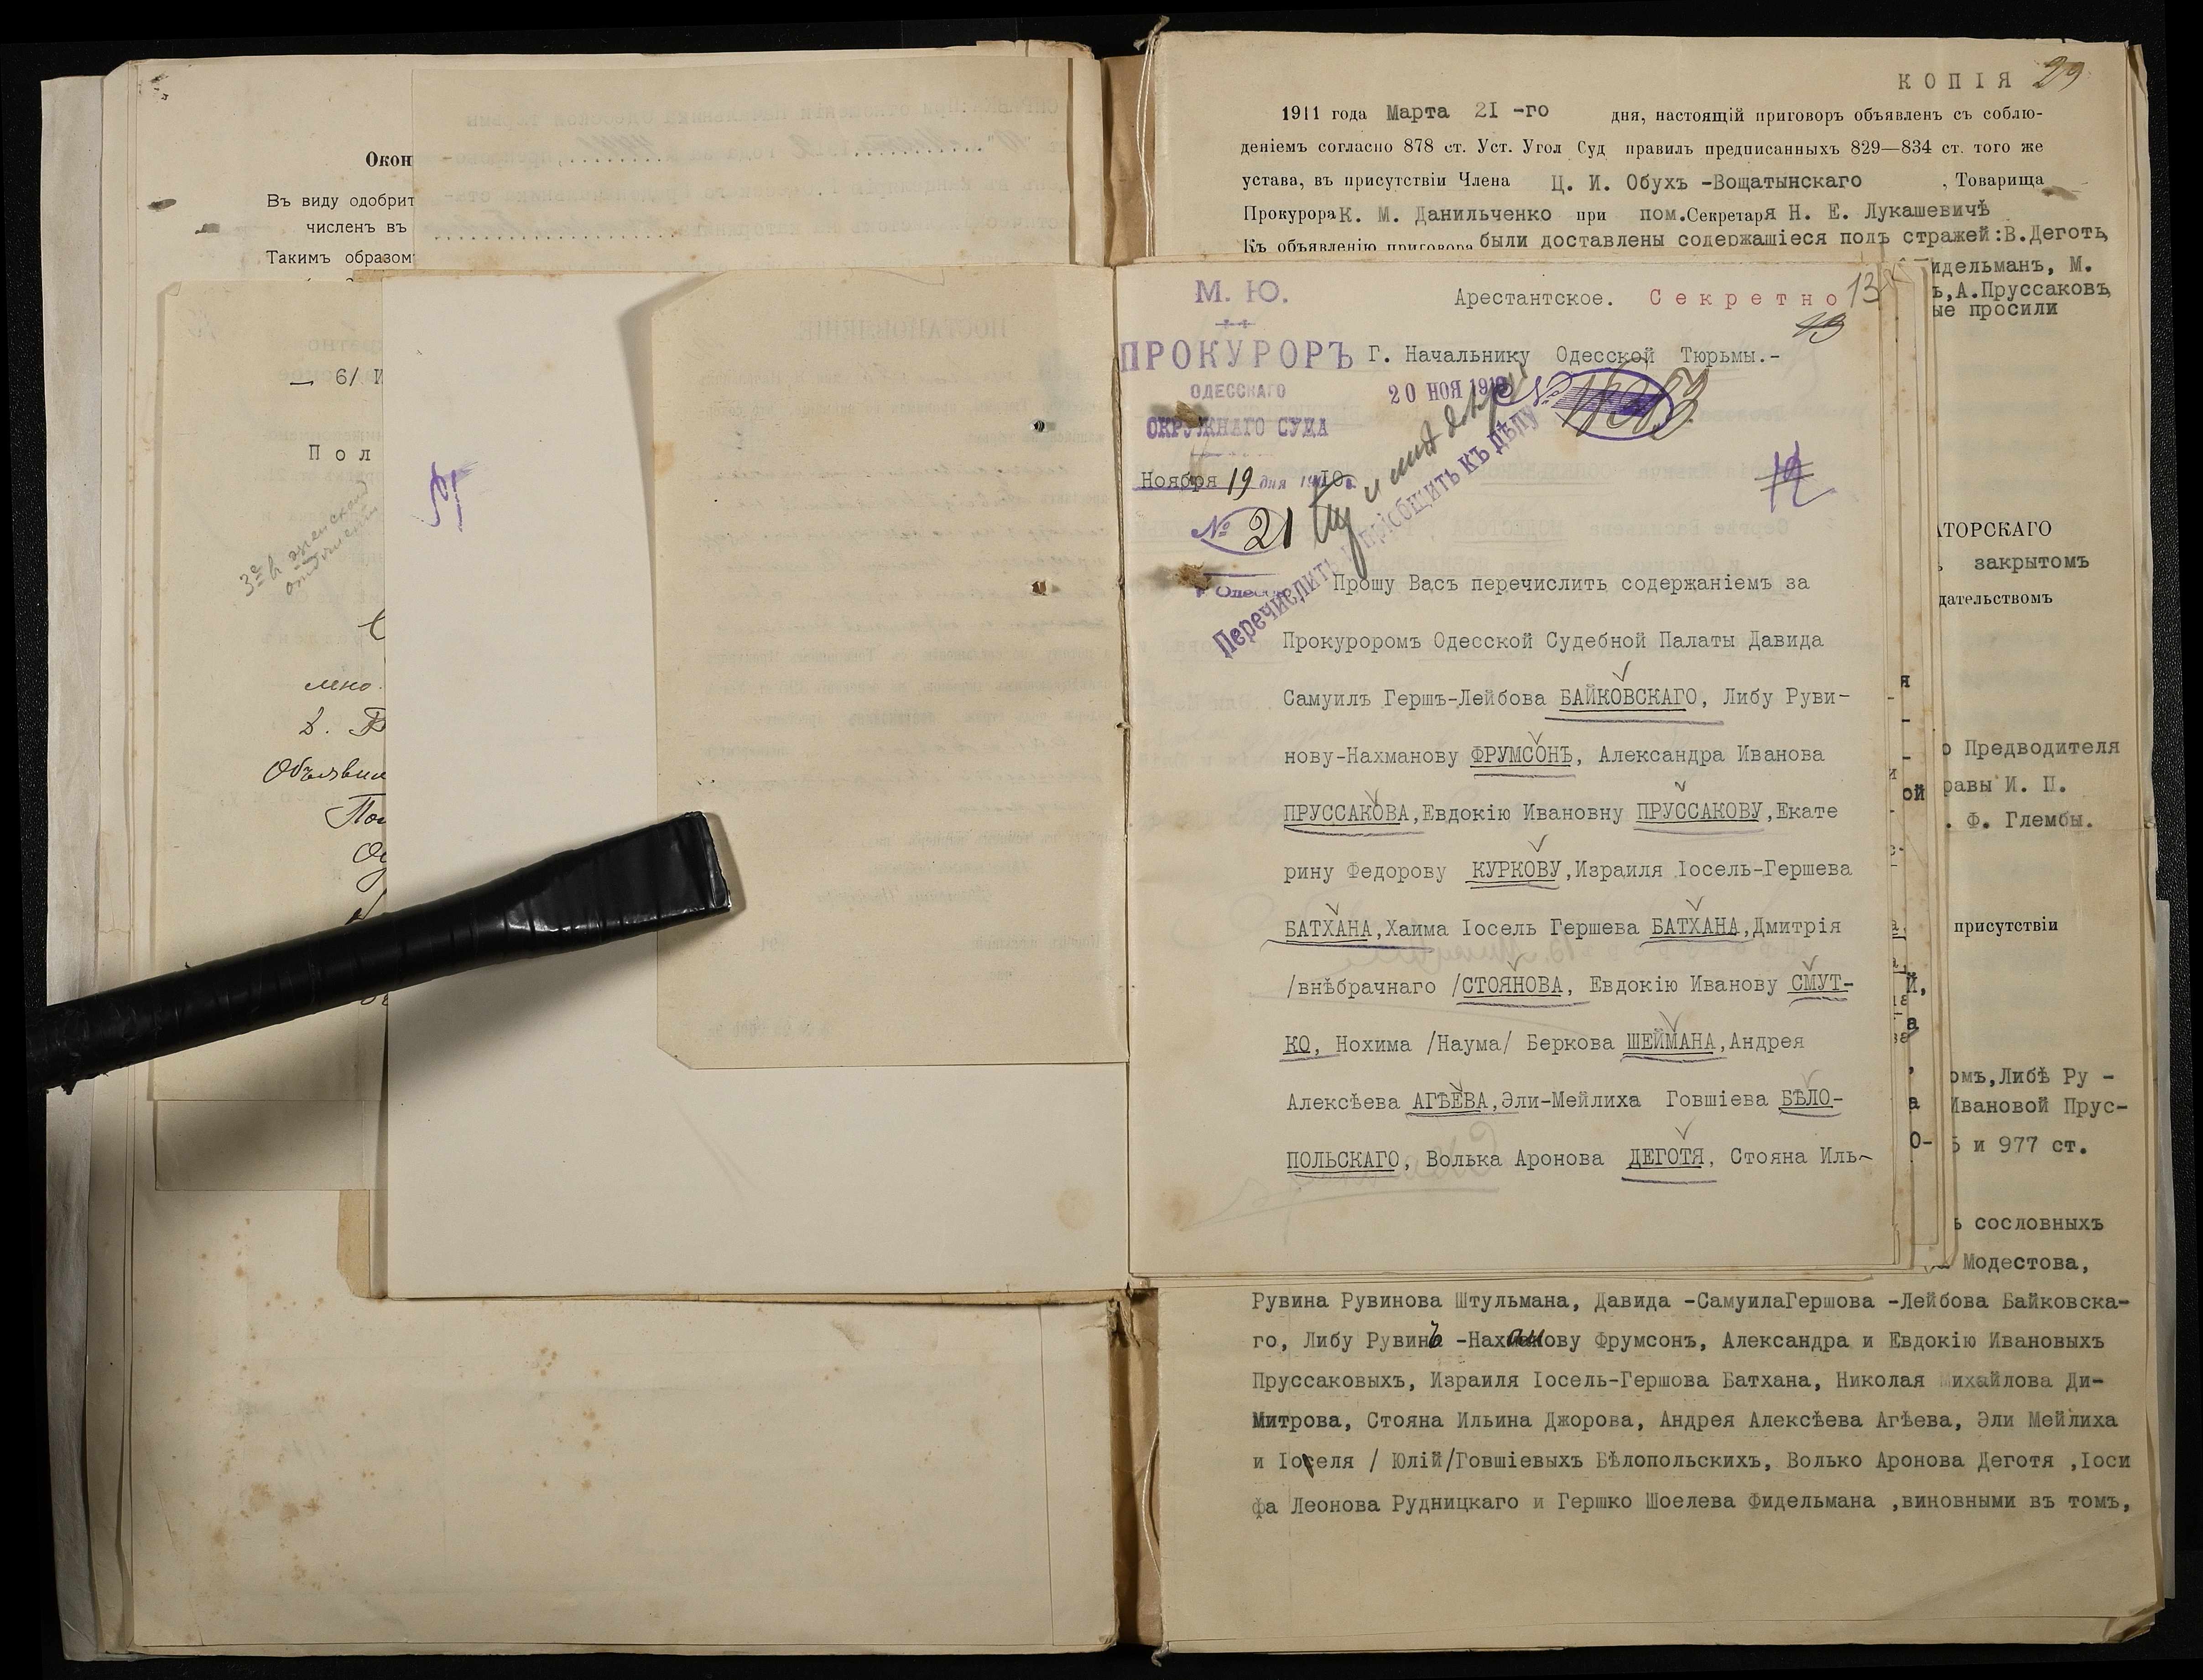 Окон
Въ виду одобрит
численъ въ
Такимъ образом
— 6/ И
Пол
3е въ женском
отделении
Объявил
КОПІЯ 29
1911 года Марта 21 -го дня, настоящій приговоръ объявленъ съ соблю-
деніемъ согласно 878 ст. Уст. Угол Суд правилъ предписанныхъ 829—834 ст. того же
устава, въ присутствіи Члена Ц. И. Обухъ -Вощатынскаго , Товарища
Прокурора К. М. Данильченко при пом.Секретаря Н. Е. Лукашевичѣ
Къ объявленію приговора были доставлены содержащіеся подъ стражей:В.Деготь,
идельманъ, М.
ъ,А.Пруссаковъ,
ые просили
М. Ю.
ПРОКУРОРЪ
ОДЕССКАГО
ОКРУЖНАГО СУДА
Ноября 19 дня 1910г.
№ 21
г. Одесса
Арестантское. Секретно 13
Г. Начальнику Одесской Тюрьмы.-
20 НОЯ 1910 №
Перечислить и пріобщить къ дѣлу
Прошу Васъ перечислить содержаніемъ за
Прокуроромъ Одесской Судебной Палаты Давида
Самуилъ Гершъ-Лейбова БАЙКОВСКАГО, Либу Руви-
нову-Нахманову ФРУМСОНЪ, Александра Иванова
ПРУССАКОВА,Евдокію Ивановну ПРУССАКОВУ,Екате
рину Федорову КУРКОВУ,Израиля Іосель-Гершева
БАТХАНА,Хаима Іосель Гершева БАТХАНА,Дмитрія
/внѣбрачнаго /СТОЯНОВА, Евдокію Иванову СМУТ-
КО, Нохима /Наума/ Беркова ШЕЙМАНА,Андрея
Алексѣева АГѢЕВА,Эли-Мейлиха Говшіева БѢЛО-
ПОЛЬСКАГО, Волька Аронова ДЕГОТЯ, Стояна Иль-
АТОРСКАГО
закрытомъ
дательствомъ
о Предводителя
равы И. П.
. Ф. Глембы.
присутствіи
омъ,Либѣ Ру -
Ивановой Прус-
5 и 977 ст.
ъ сословныхъ
Модестова,
Рувина Рувинова Штульмана, Давида -СамуилаГершова -Лейбова Байковска-
го, Либу Рувинъ -Нахманову Фрумсонъ, Александра и Евдокію Ивановыхъ
Пруссаковыхъ, Израиля Іосель-Гершова Батхана, Николая Михайлова Ди-
Митрова, Стояна Ильина Джорова, Андрея Алексѣева Агѣева, Эли Мейлиха
и Іоселя / Юлій/Говшіевыхъ Бѣлопольскихъ, Волько Аронова Деготя ,Іоси
фа Леонова Рудницкаго и Гершко Шоелева Фидельмана ,виновными въ томъ,